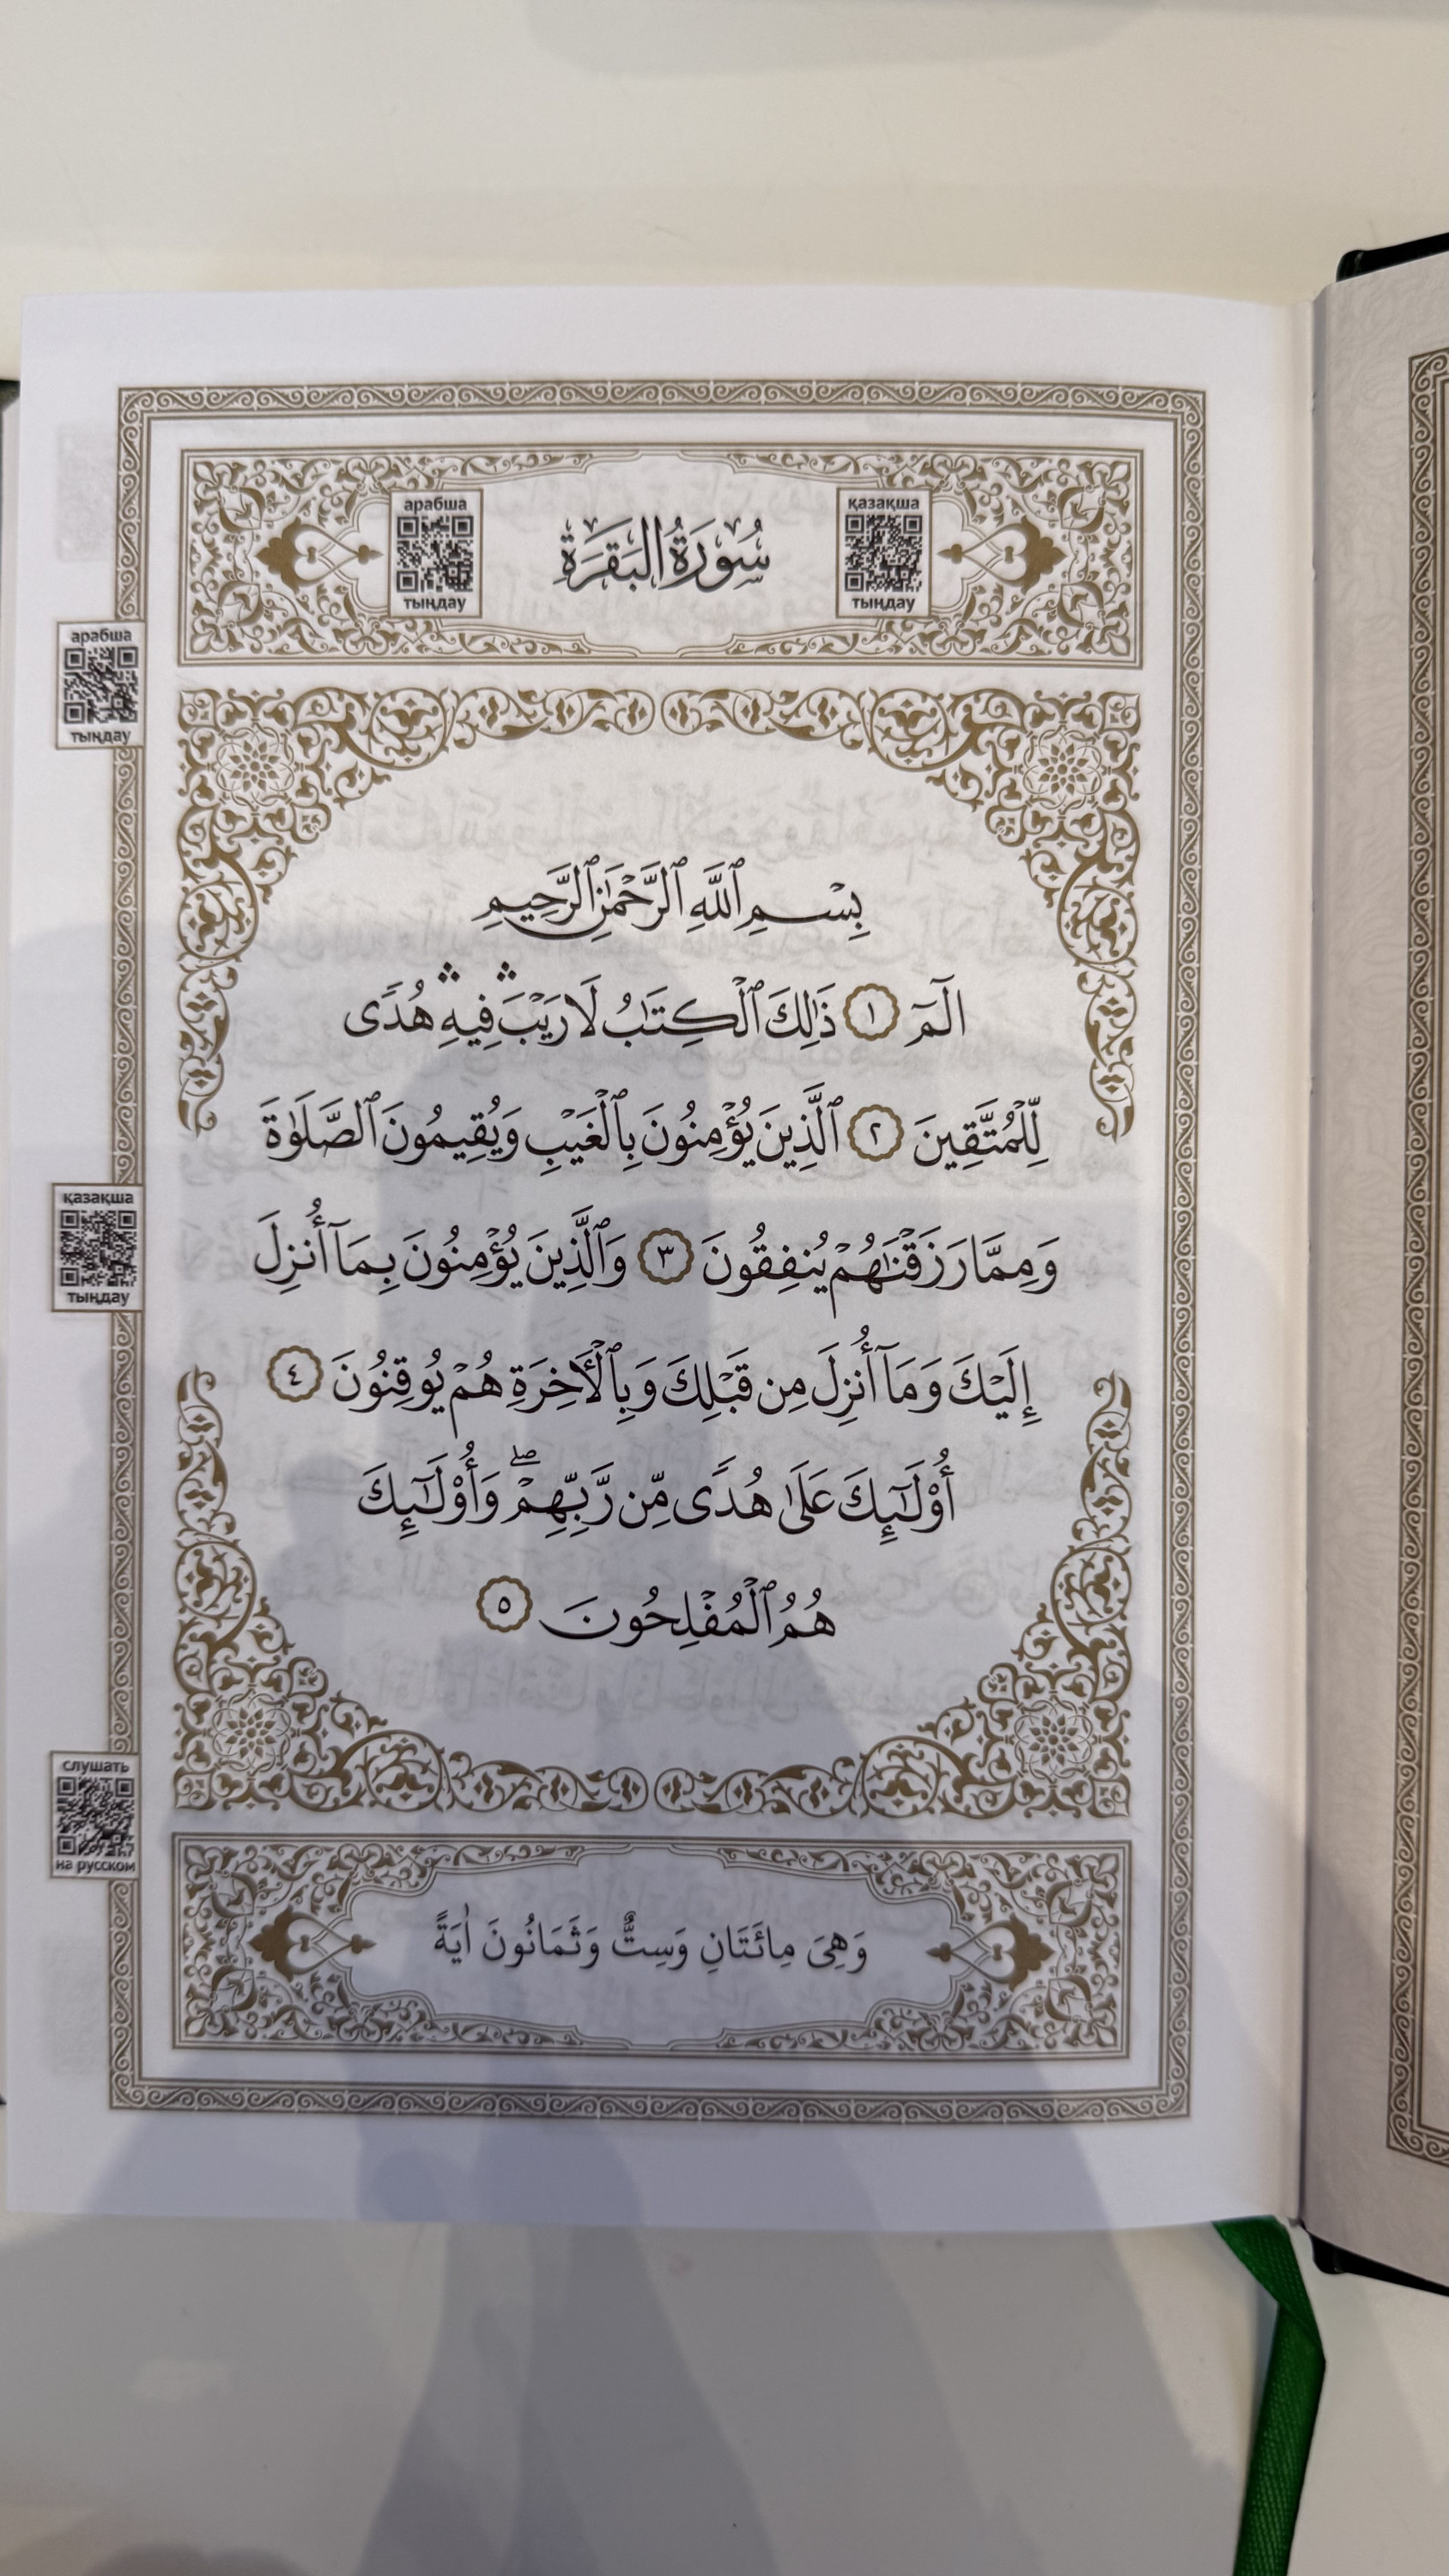 арабша
тыңдау
سُورَةُ البَقَرَةِ
қазақша
тыңдау
арабша
тыңдау
بِسْمِ ٱللَّهِ ٱلرَّحْمَٰنِ ٱلرَّحِيمِ
الٓمٓ ١ ذَٰلِكَ ٱلْكِتَٰبُ لَا رَيْبَ ۛ فِيهِ ۛ هُدًى
لِّلْمُتَّقِينَ ٢ ٱلَّذِينَ يُؤْمِنُونَ بِٱلْغَيْبِ وَيُقِيمُونَ ٱلصَّلَوٰةَ
қазақша
тыңдау
وَمِمَّا رَزَقْنَٰهُمْ يُنفِقُونَ ٣ وَٱلَّذِينَ يُؤْمِنُونَ بِمَآ أُنزِلَ
إِلَيْكَ وَمَآ أُنزِلَ مِن قَبْلِكَ وَبِٱلْأَخِرَةِ هُمْ يُوقِنُونَ ٤
أُوْلَٰٓئِكَ عَلَىٰ هُدًى مِّن رَّبِّهِمْ ۖ وَأُوْلَٰٓئِكَ
هُمُ ٱلْمُفْلِحُونَ ٥
слушать
на русском
وَهِيَ مِائَتَانِ وَسِتٌّ وَثَمَانُونَ اٰيَةً